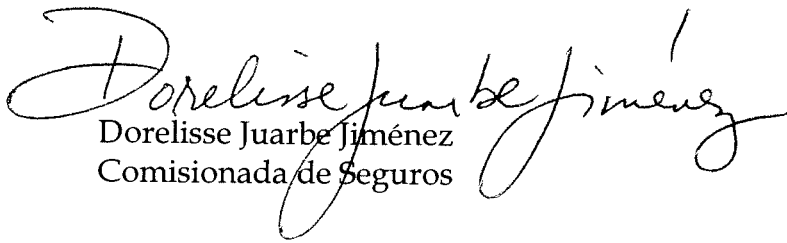 Dorelisse Juarbe Jiménez
Dorelisse Juarbe Jiménez
Comisionada de Seguros